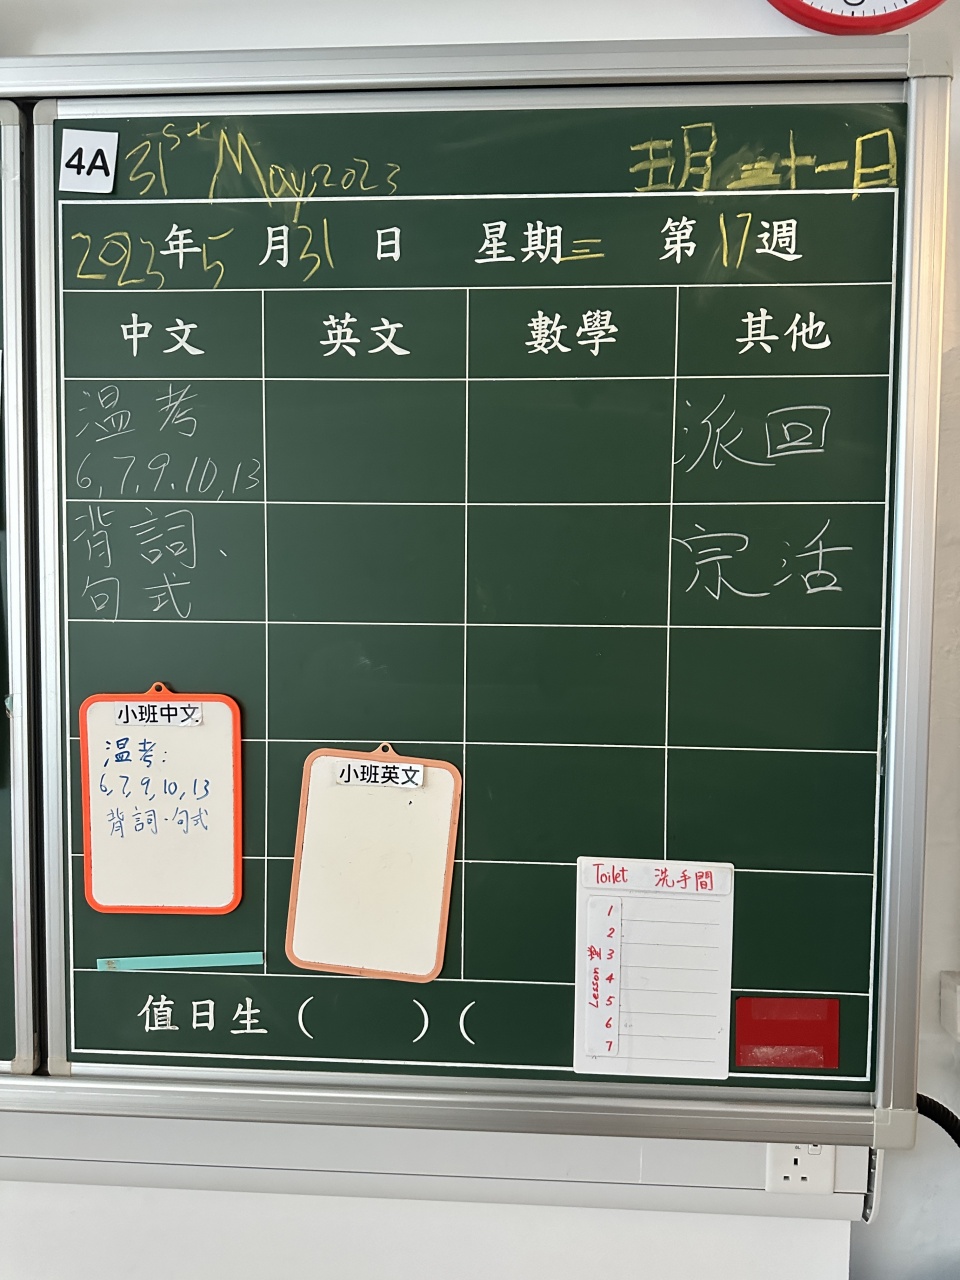 4A 31st May, 2023 五月三十一日
2023年5月31日 星期三 第17週
中文 英文 數學 其他
温考 派回
6,7,9,10,13
背詞、 宗活
句式
小班中文
温考:
6,7,9,10,13
背詞、句式
小班英文
Toilet 洗手間
Lesson 堂
1
2
3
4
5
6
7
值日生( )(